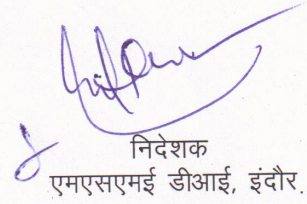 निदेशक
एमएसएमई डीआई, इंदौर.